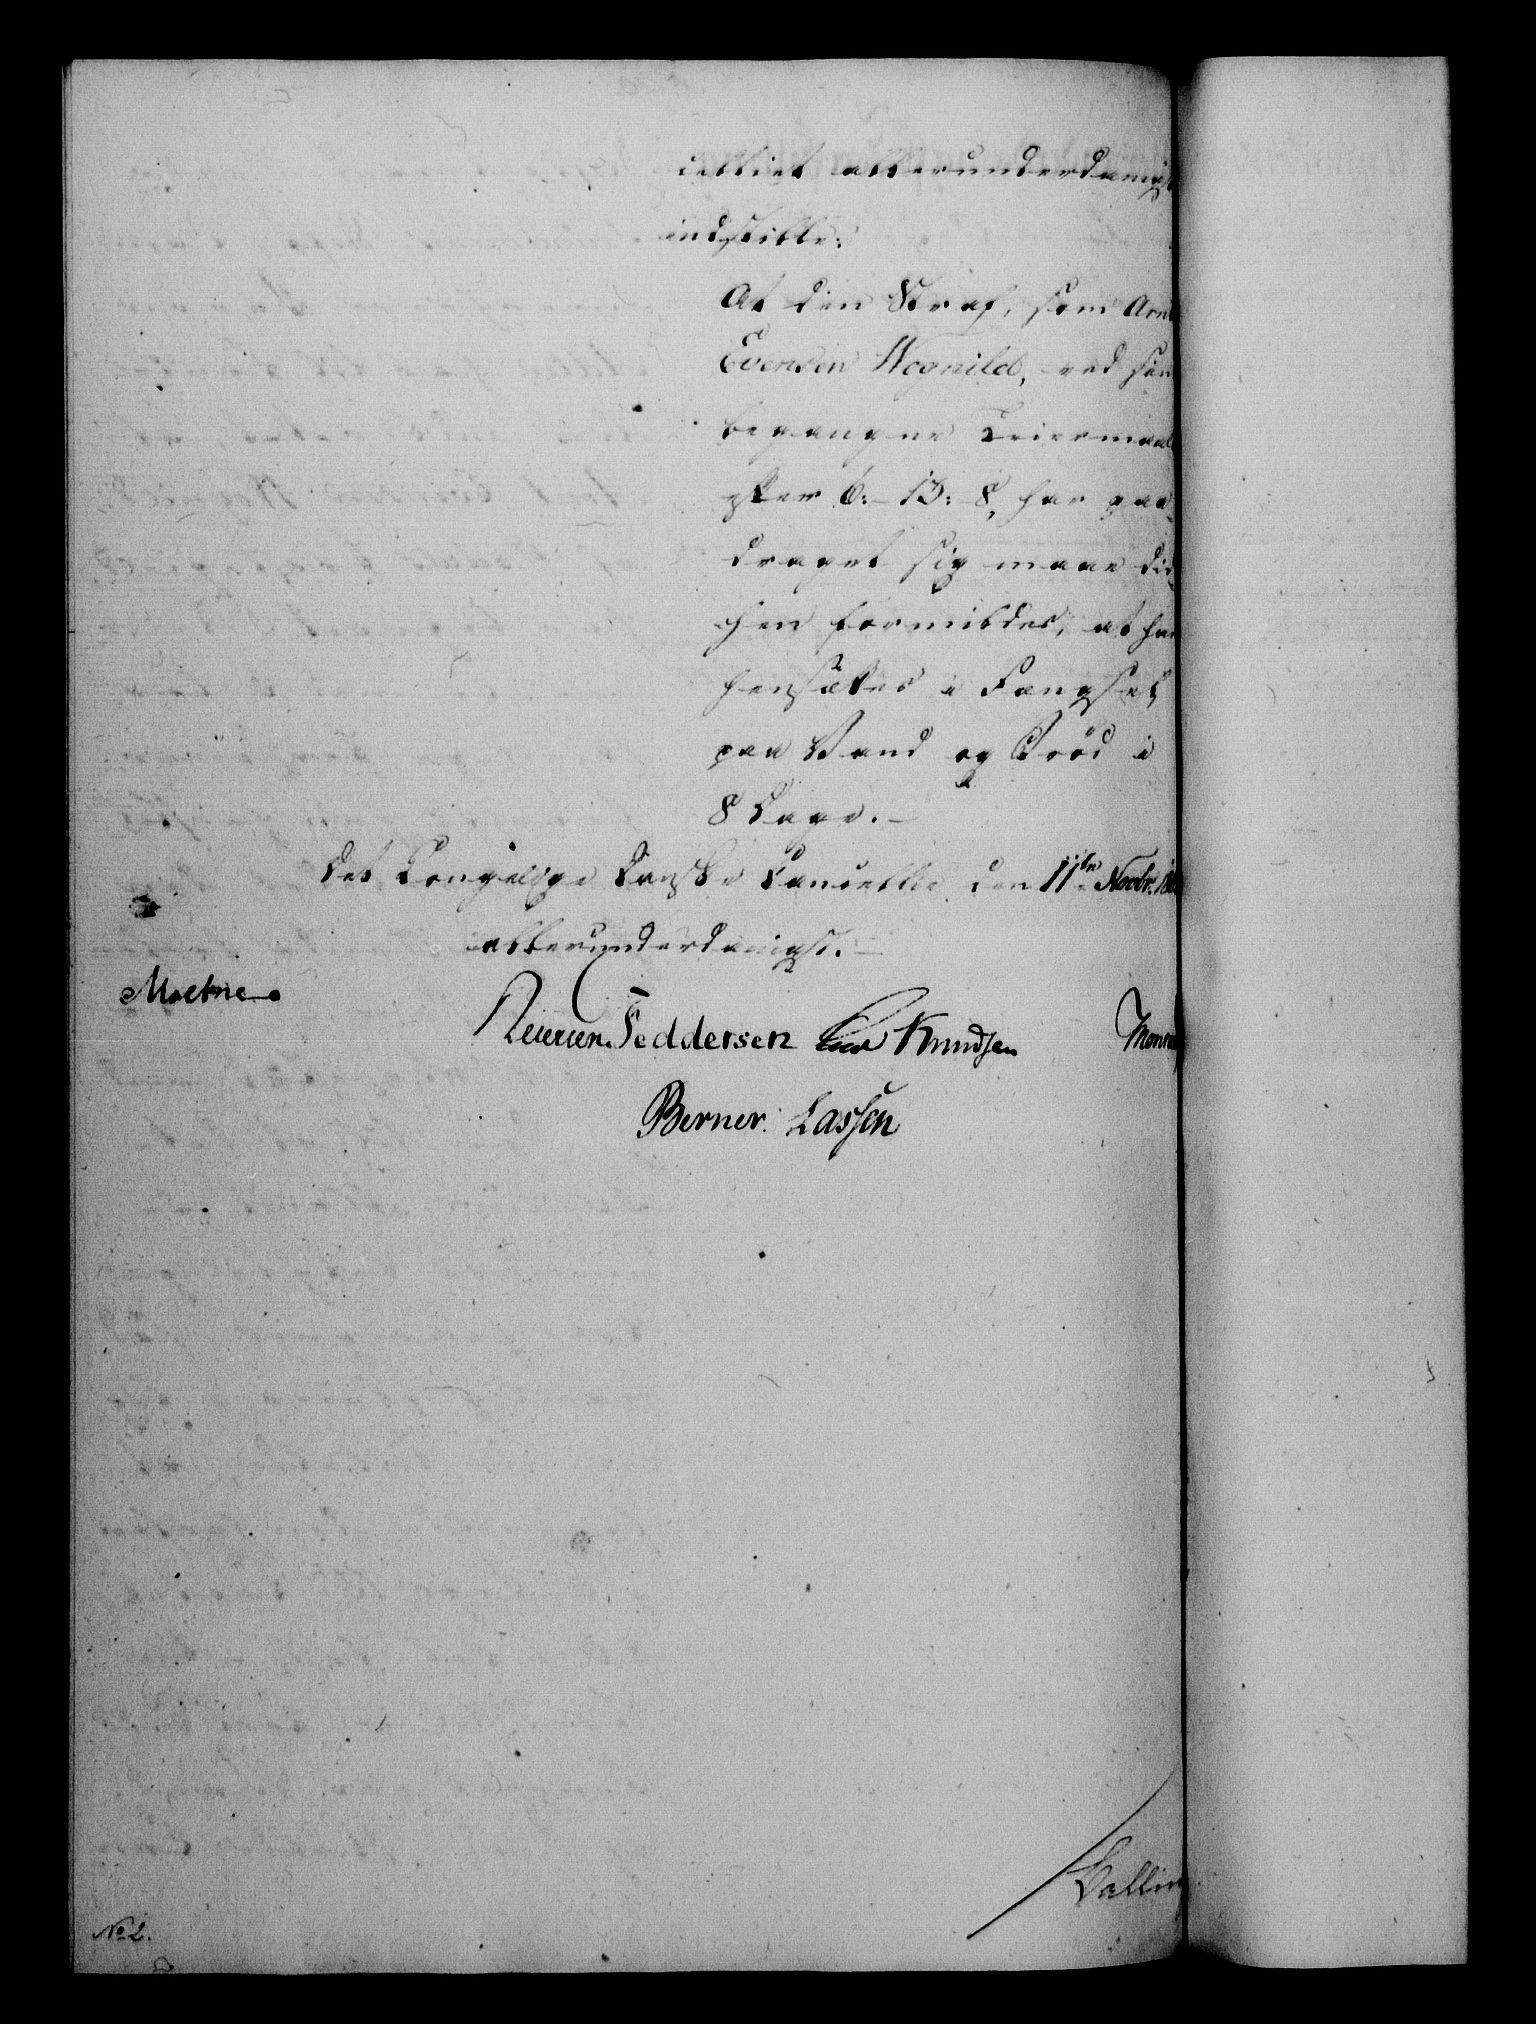 celliet allerunderdanigst
indstille:
At den Straf, som
Evensen Wognild, ved sin
begangne Leiermaal
efter 6:-13:-8, har paa-
draget sig maae der-
hen formildes, at han
hensættes i Fængsel
paa Vand og Brød i
8 Dage.-
Det Kongelige Danske Cancellie den 11te Novbr.
allerunderdanigst.-
Moltke
Feddersen Knudsen Monrad
Berner. Lassen
No 2.